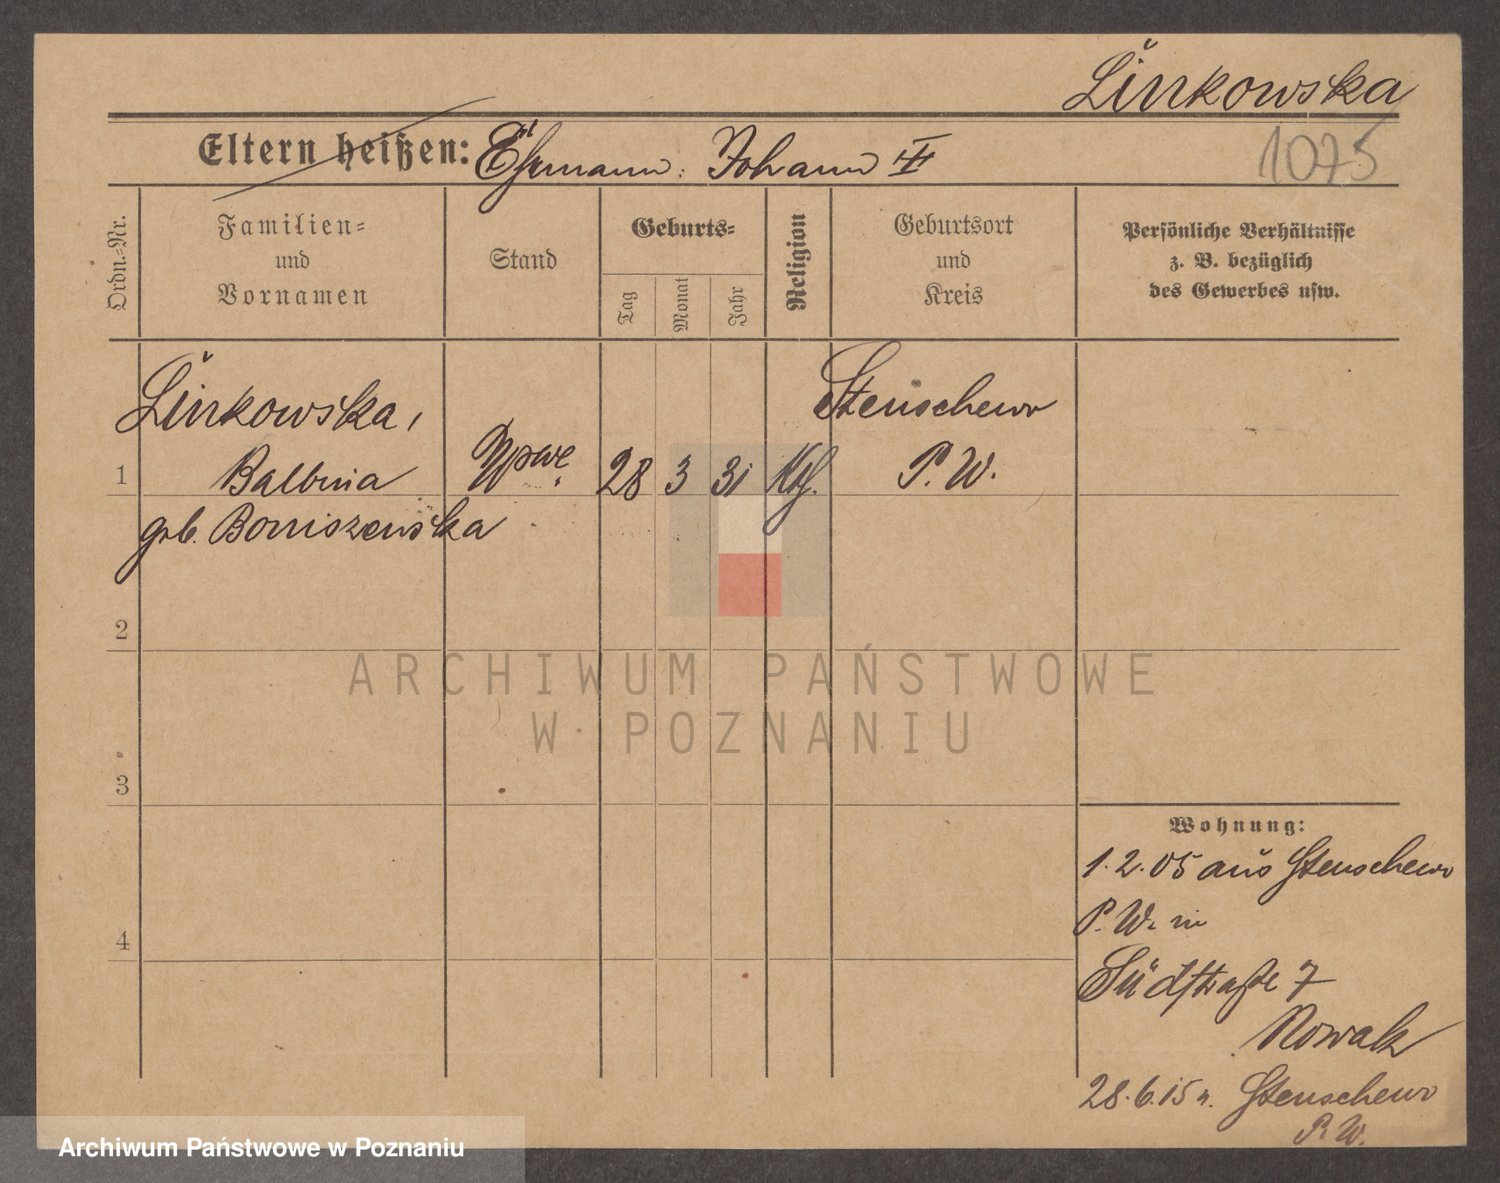 Linkowska
Eltern heißen: Ehrmann: Johann
1075
Ordn.-Nr.
Familien-
und
Vornamen
Stand
Geburts-
Tag
Monat
Jahr
Religion
Geburtsort
und
Kreis
Persönliche Verhältnisse
z. B. bezüglich
des Gewerbes usw.
Linkowska,
Stenschewo
1 Balbina Wwe 28 3 31 Kth. P. W.
geb. Boniszewska
2
ARCHIWUM PAŃSTWOWE
W POZNANIU
3
Wohnung:
1.2.05 aus Stenschewo
P. W. in
4
Südstraße 7
Nowak
28.6.15 n. Stenschewo
P. W.
Archiwum Państwowe w Poznaniu